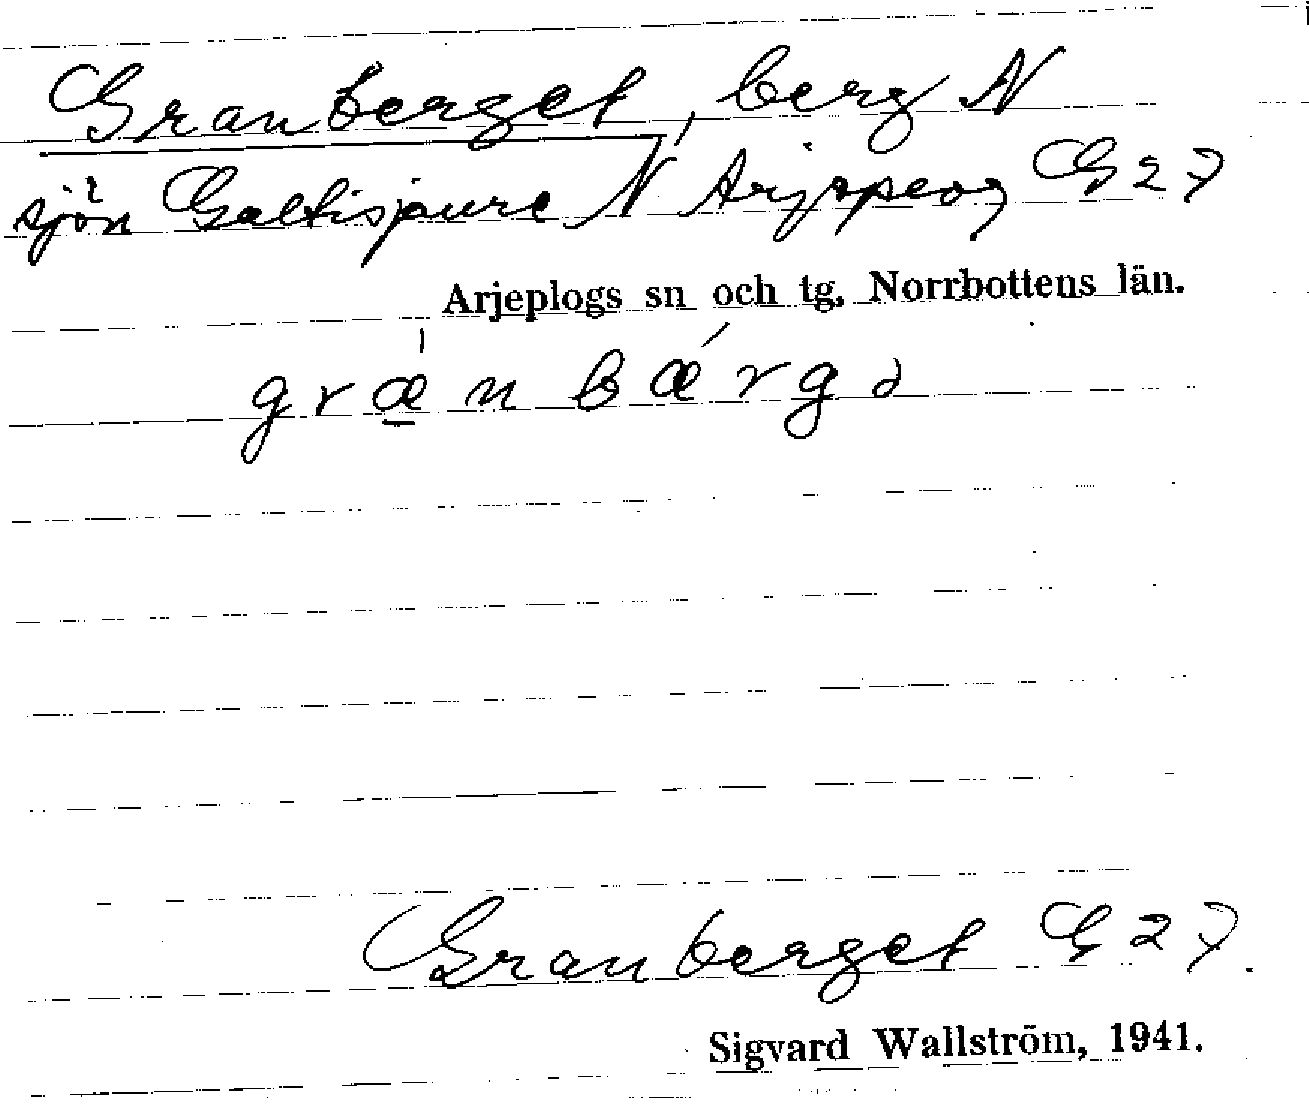 Granberget, berg N
sjön Galtispure N Arjepeog G 27
Arjeplogs sn och tg. Norrbottens län.
grǽ̱nbǽrgə
Granberget G 27.
Sigvard Wallström, 1941.